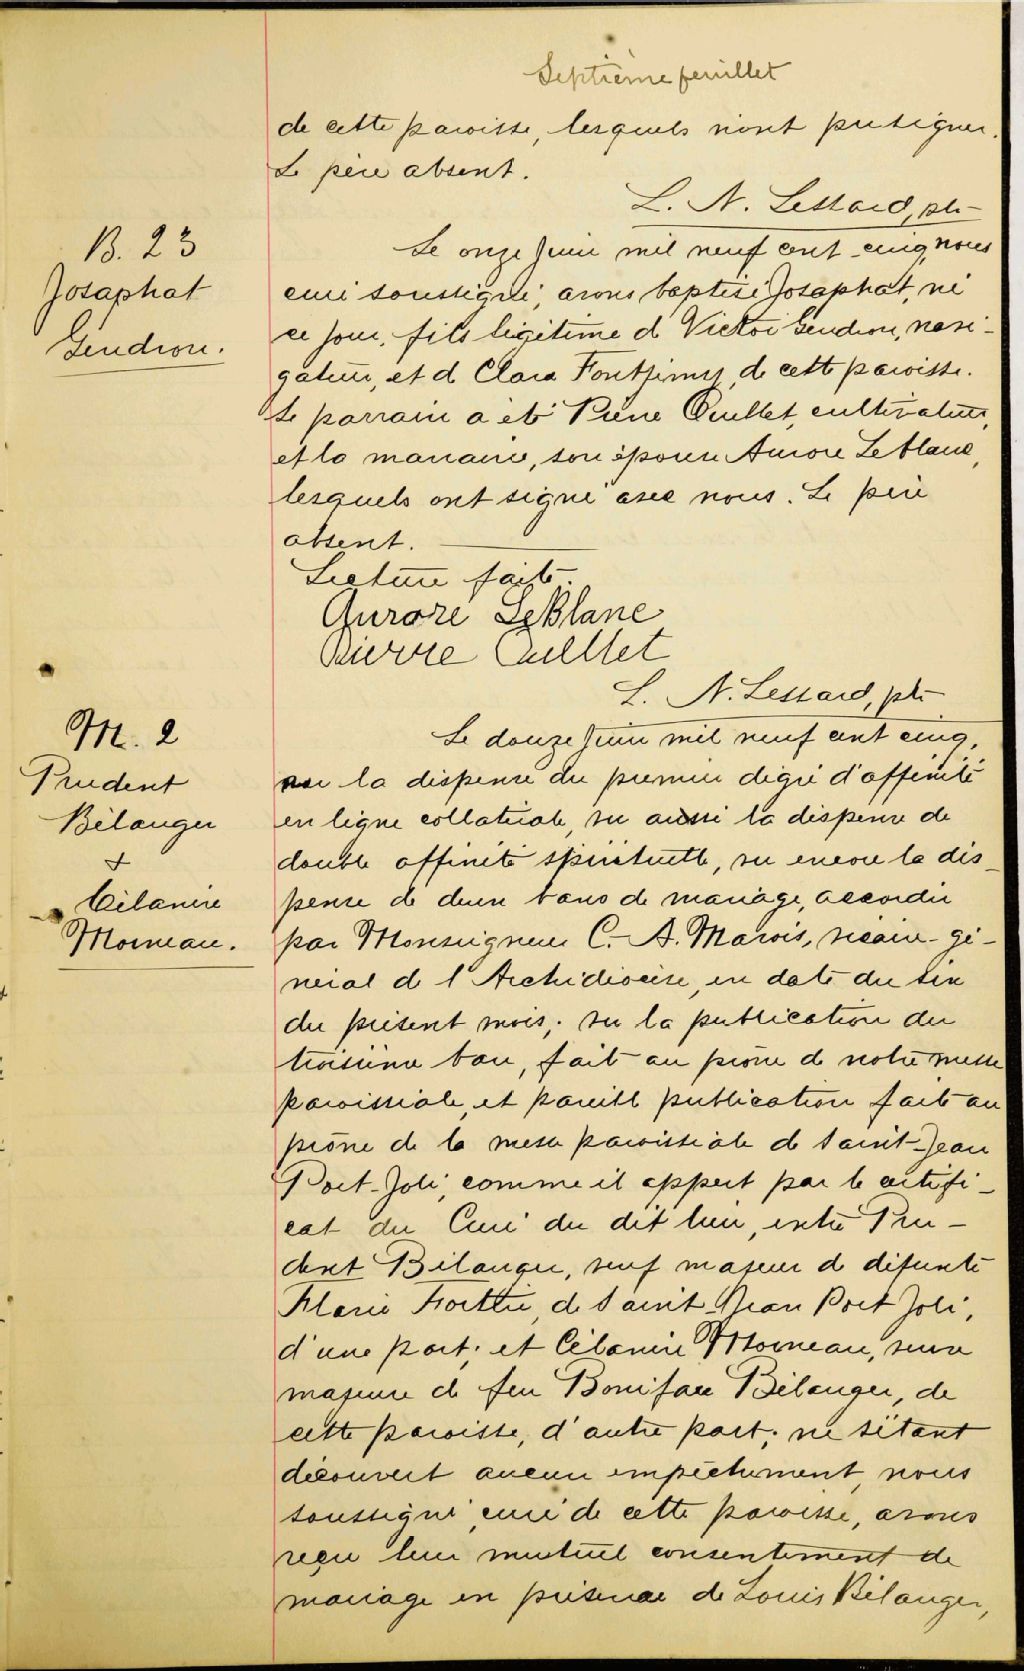 Septième feuillet
de cette paroisse, lesquels n'ont pu signer.
Le père absent.
L. N. Lessard, ptr
B. 23
Josaphat
Gendron.
Le onze Juin mil neuf cent cinq, nous
curé soussigné, avons baptisé Josaphat, né
ce jour, fils légitime de Victor Gendron, navi-
gateur, et de Clara Fontjimy, de cette paroisse.
Le parrain a été Pierre Ouellet, cultivateur,
et la marraine, son épouse Aurore Leblanc,
lesquels ont signé avec nous. Le père
absent.
Lecture faite.
Aurore LeBlanc
Pierre Ouellet
L. N. Lessard, ptr
M. 2
Prudent
Bélanger
&
Célanire
Morneau.
Le douze Juin mil neuf cent cinq,
vu la dispense du premier degré d'affinité
en ligne collatérale, vu aussi la dispense de
double affinité spirituelle, vu encore la dis-
pense de deux bans de mariage, accordée
par Monseigneur C.-A. Marois, vicaire-gé-
néral de l'Archidiocèse, en date du six
du présent mois; vu la publication du
troisième ban, fait au prône de notre messe
paroissiale, et pareille publication faite au
prône de la messe paroissiale de Saint-Jean
Port-Joli, comme il appert par le certifi-
cat du Curé du dit lieu, entre Pru-
dent Bélanger, veuf majeur de défunte
Flavie Fortin, de Saint-Jean Port Joli,
d'une part; et Célanire Morneau, veuve
majeure de feu Boniface Bélanger, de
cette paroisse, d'autre part; ne s'étant
découvert aucun empêchement, nous
soussigné, curé de cette paroisse, avons
reçu leur mutuel consentement de
mariage en présence de Louis Bélanger,